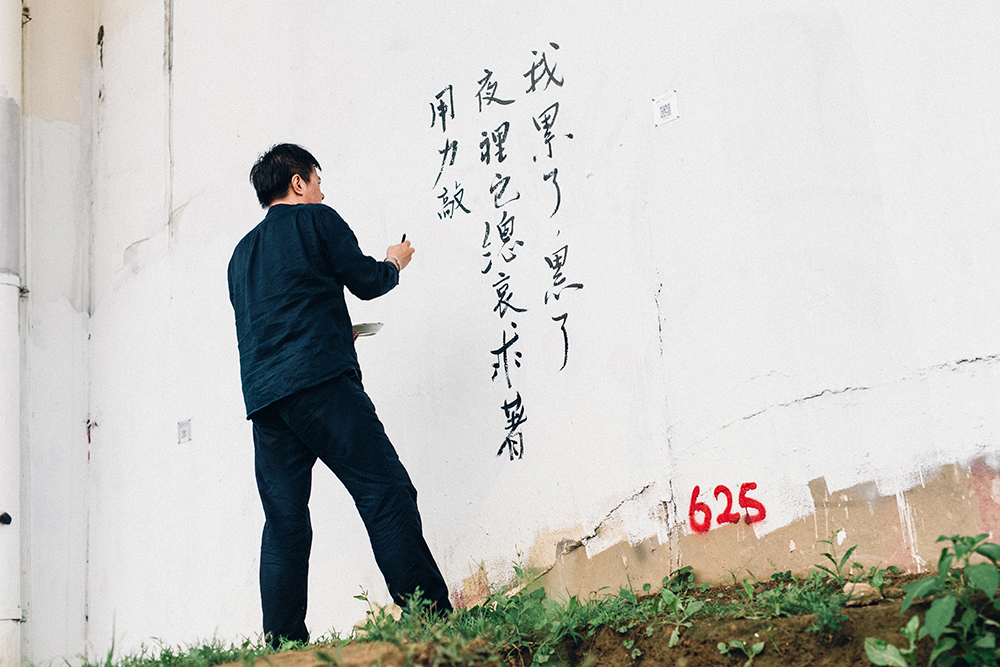 我累了，黑了
夜裡它總哀求著
用力敲
625